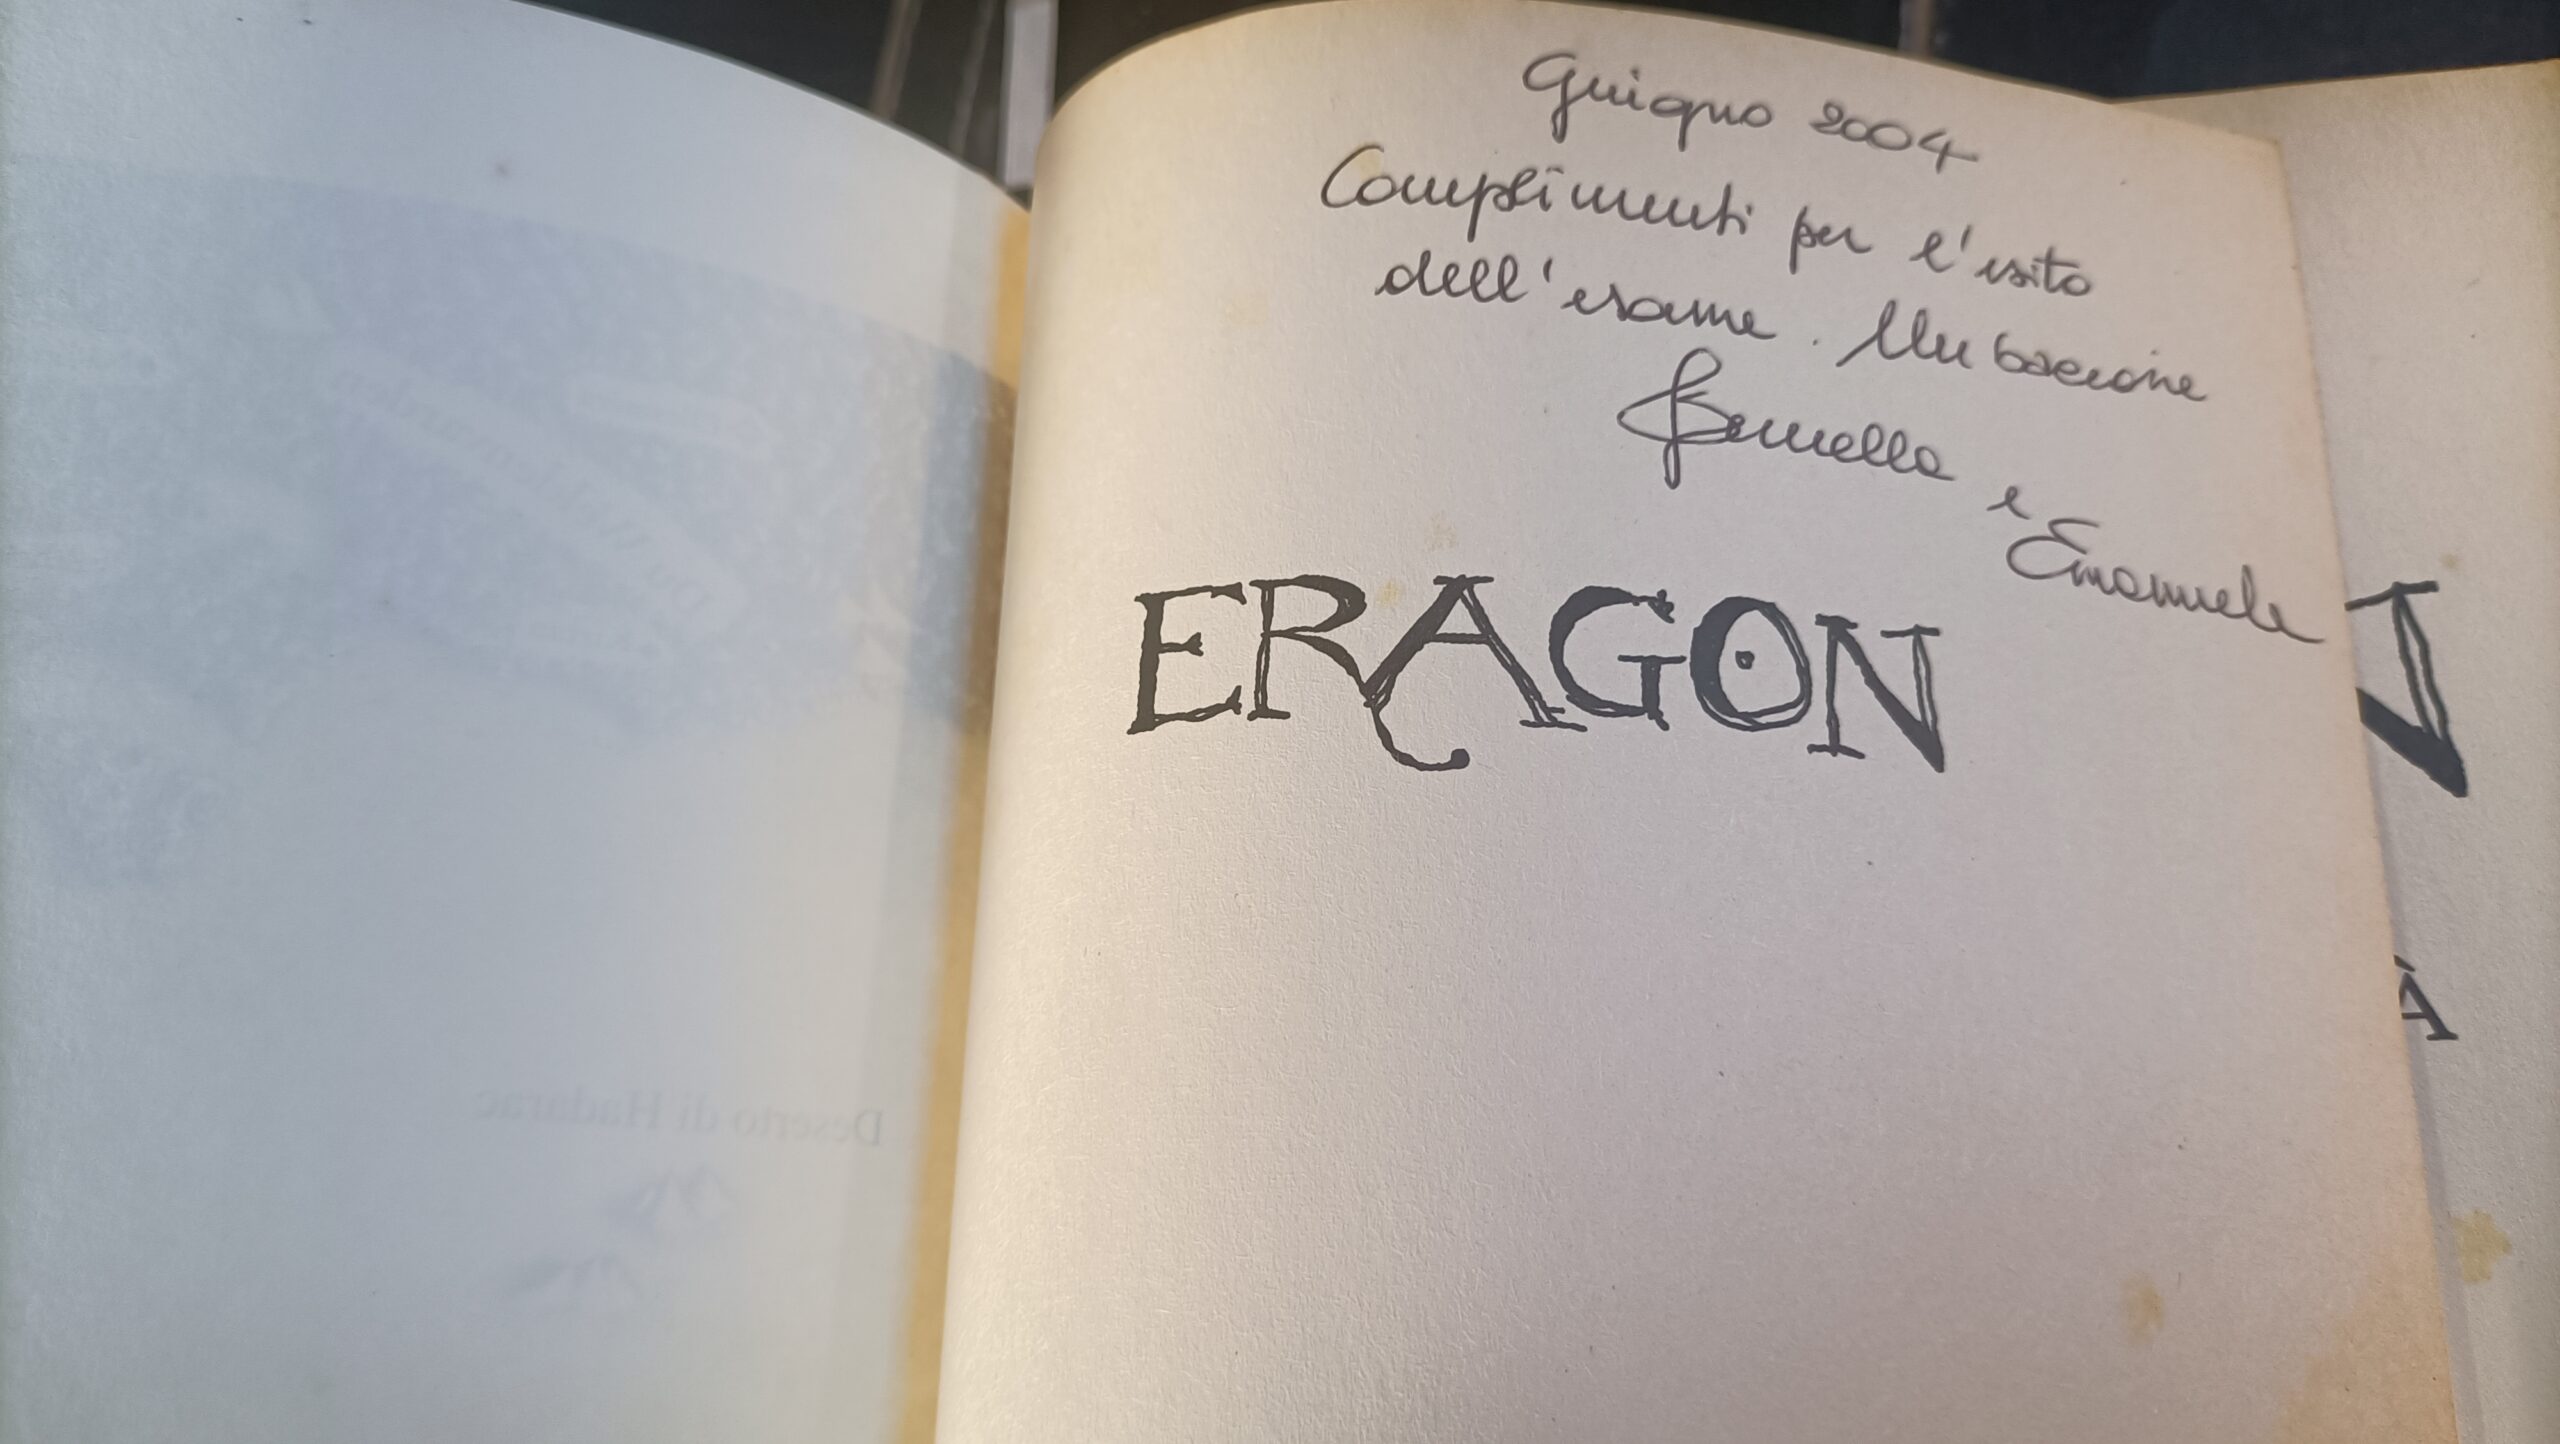 Giugno 2004
Complimenti per l'esito
dell'esame. Un bacione
e
Emanuele
ERAGON
N
À
Du Weldenvarden
Deserto di Hadarac